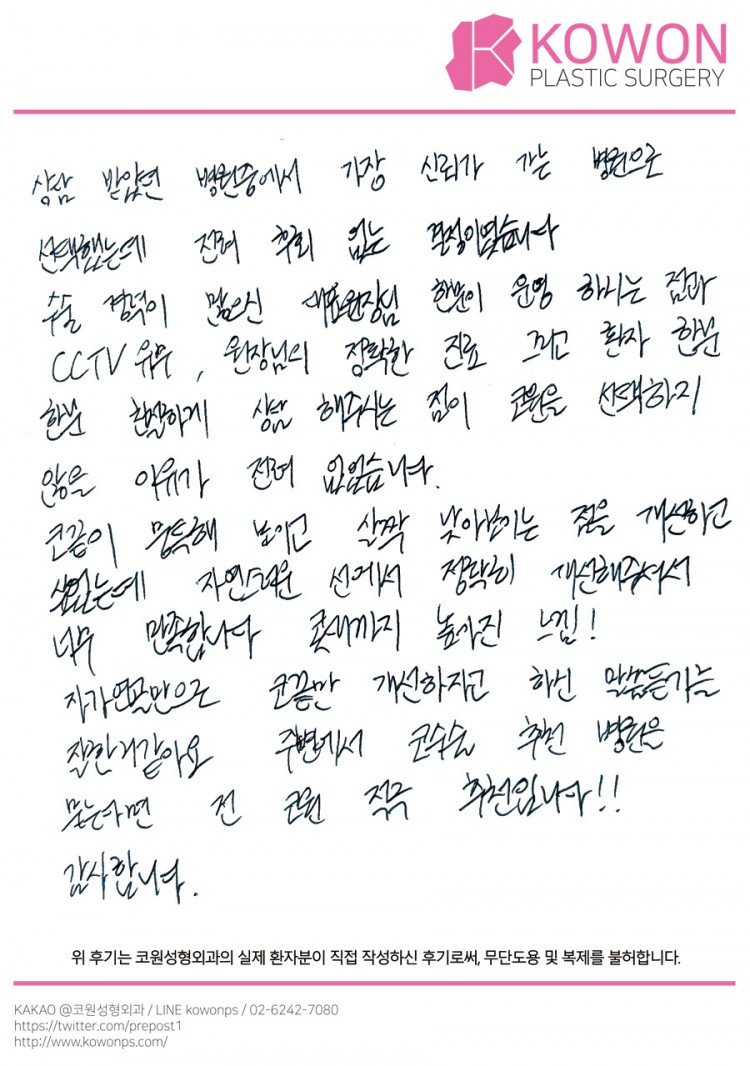 KOWON
PLASTIC SURGERY
상담 받았던 병원중에서 가장 신뢰가 가는 병원으로
선택했는데 전혀 후회 없는 결정이었습니다
수술 경력이 많으신 대표원장님 한분이 운영 하시는 점과
CCTV 유무, 원장님의 정확한 진료 그리고 환자 한분
한분 친절하게 상담 해주시는 점이 코원을 선택하지
않을 이유가 전혀 없었습니다.
코끝이 뭉뚝해 보이고 살짝 낮아보이는 점을 개선하고
싶었는데 자연스러운 선에서 정확히 개선해주셔서
너무 만족합니다 콧대까지 높아진 느낌!
자가연골만으로 코끝만 개선하자고 하신 말씀듣기를
잘한거같아요 주변에서 코수술 추천 병원을
묻는다면 전 코원 적극 추천입니다!!
감사합니다.
위 후기는 코원성형외과의 실제 환자분이 직접 작성하신 후기로써, 무단도용 및 복제를 불허합니다.
KAKAO @코원성형외과 / LINE kowonps / 02-6242-7080
https://twitter.com/prepost1
http://www.kowonps.com/